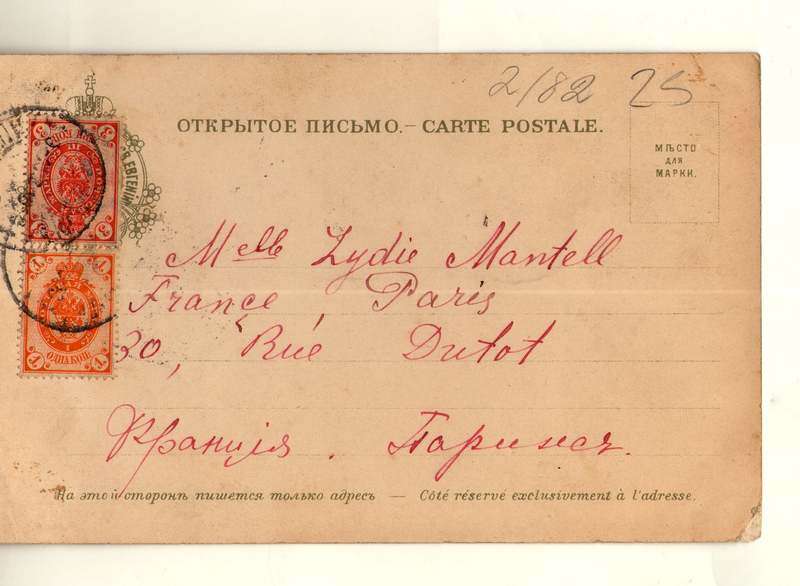 2/82 25
ОТКРЫТОЕ ПИСЬМО.— CARTE POSTALE.
МѢСТО
ДЛЯ
МАРКИ.
ЕВГЕНІИ
3
3
Melle Lydie Mantell
France, Paris
20, Rue Dutot
1
1
ОДНА КОП.
1
1
Франція. Парижъ.
На этой сторонѣ пишется только адресъ — Côté réservé exclusivement à l'adresse.